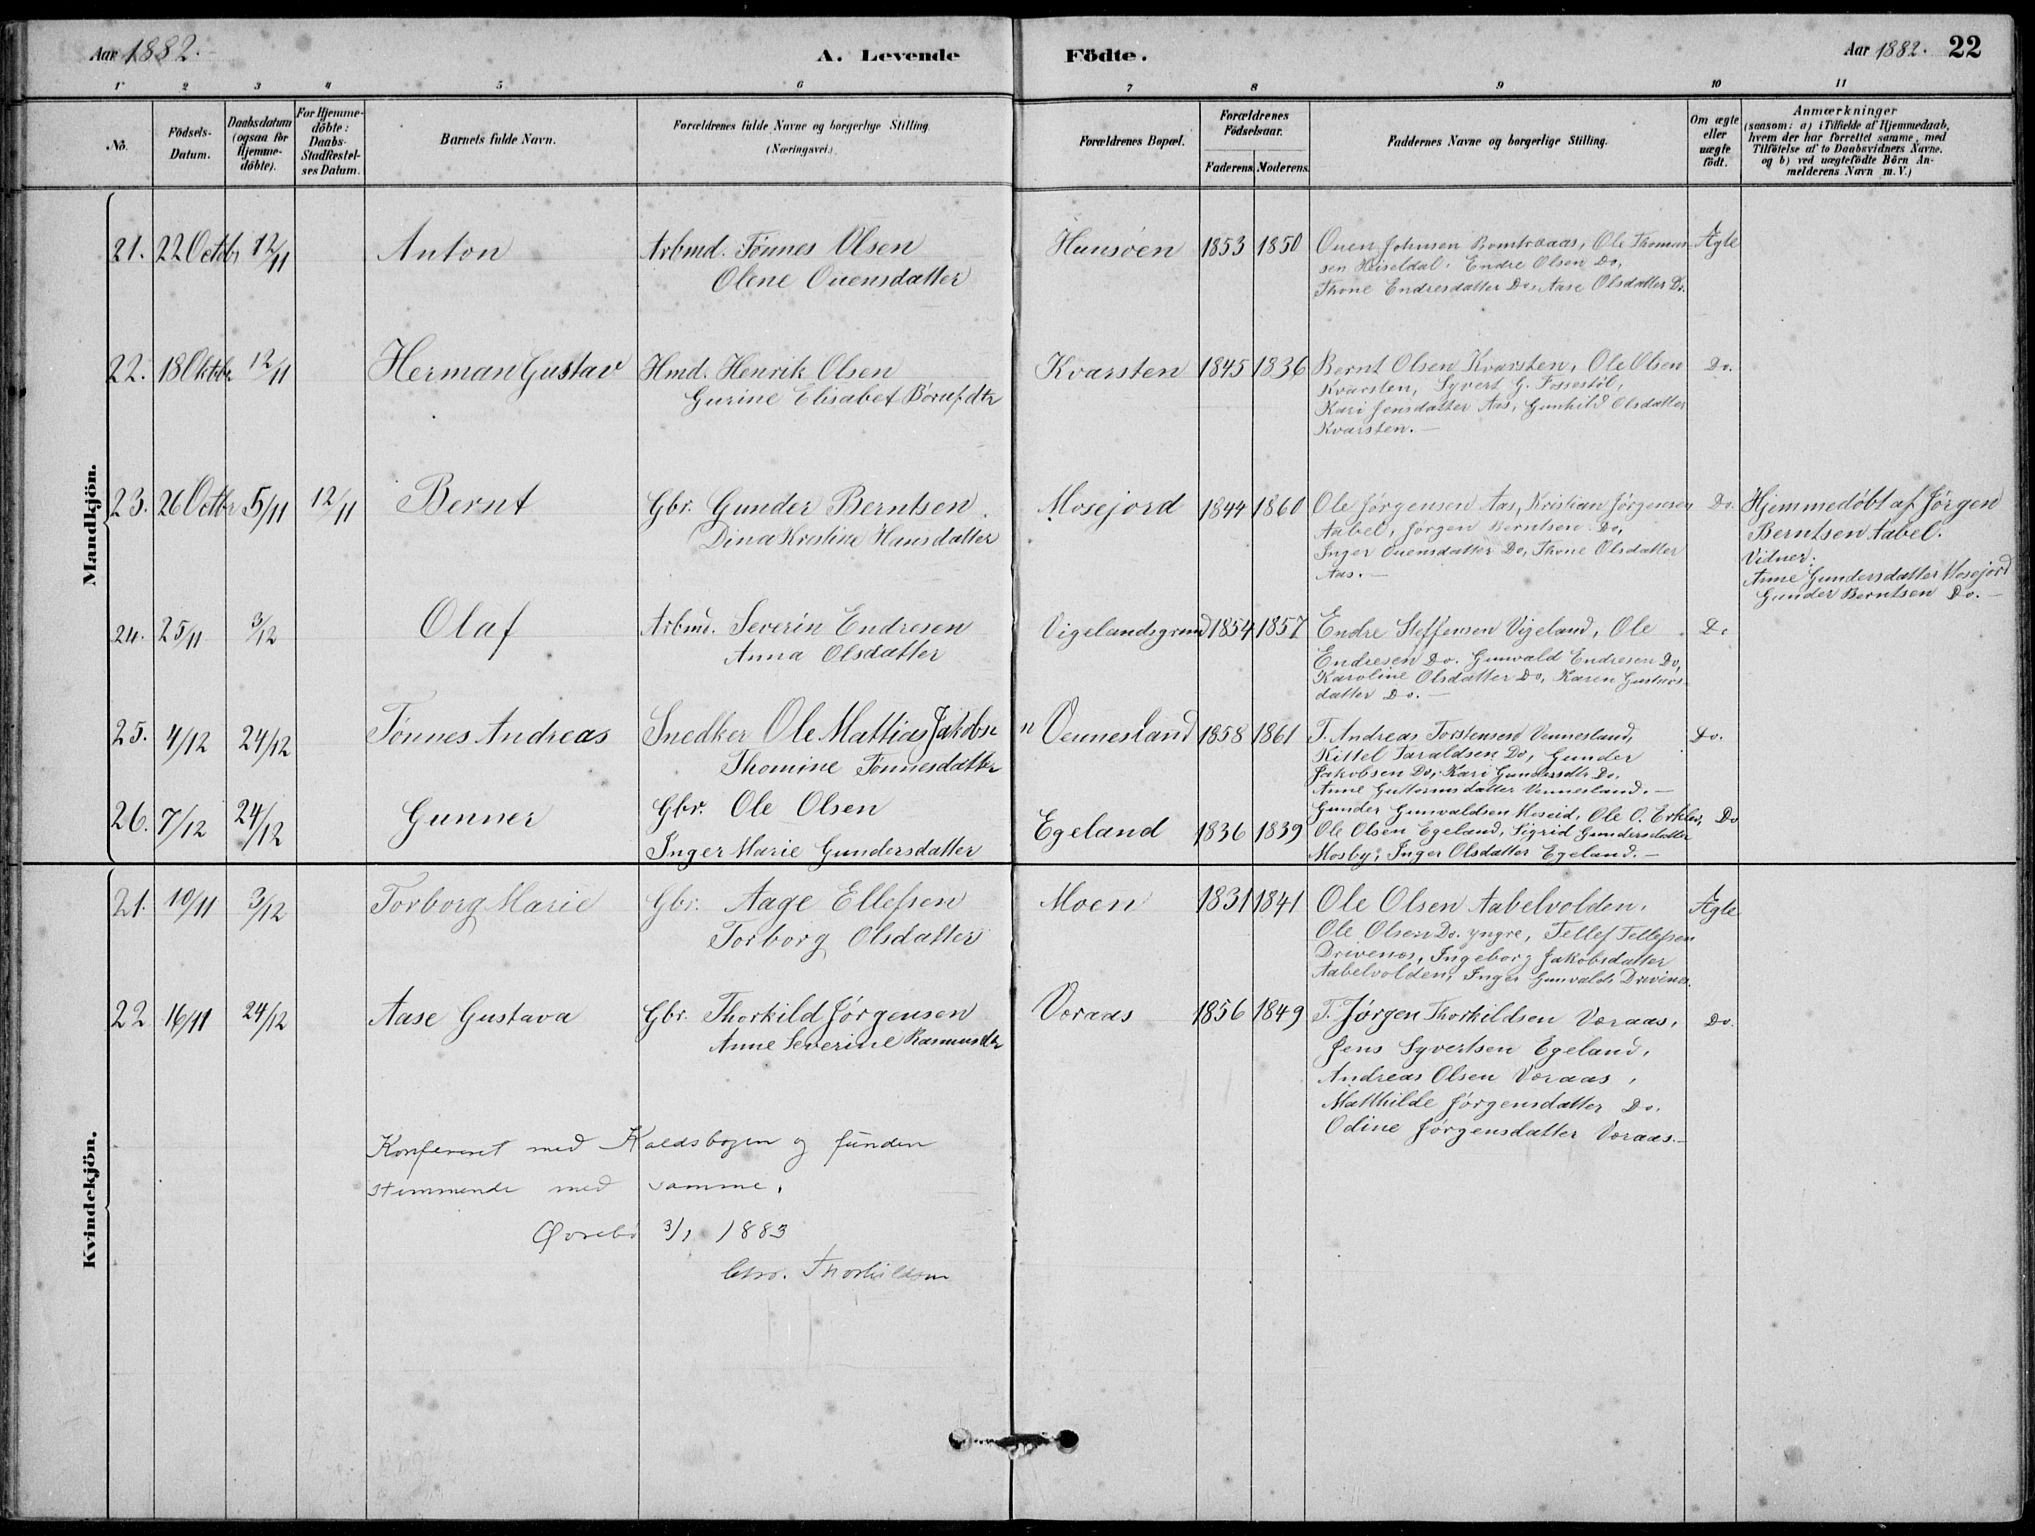 Aar 1882.
A. Levende Födte.
Aar 1882. 22
1 2 3 4 5 6 7 8 9 10 11
No.
Födsels-Datum.
Daabsdatum (ogsaa for Hjemme-döbte).
For Hjemme-döbte: Daabs-Stadfæstel-ses Datum.
Barnets fulde Navn.
Forældrenes fulde Navne og borgerlige Stilling. (Næringsvei.)
Forældrenes Bopæl.
Forældrenes Födselsaar.
Faderens. Moderens.
Faddernes Navne og borgerlige Stilling.
Om ægte eller uægte födt.
Anmærkninger
(saasom: a) i Tilfælde af Hjemmedaab, hvem der har forrettet samme, med Tilföielse af to Daabsvidners Navne, og b) ved uægtefödte Börn An-melderens Navn m. V.)
Mandkjön.
21. 22 Octbr 12/11 Anton Arbmd. Tönnes Olsen Hunsöen 1853 1850 Ouen Johnsen Ole Thomas- Ægte
Olene Ouensdatter sen Heiseldal, Endre Olsen Do,
Thone Endresdatter Do, Aase Olsdatter Do.
22. 18 Oktbr 12/11 Herman Gustav Hmd. Henrik Olsen Kvarsten 1845 1836 Bernt Olsen Kvarsten, Ole Olsen Do.
Gurine Elisabet Kvarsten, Syvert G. Fossestöl,
Kari Jensdatter Aas, Gunhild Olsdatter
Kvarsten.
23. 26 Octbr 5/11 12/11 Bernt Gbr. Gunder Berntsen Mosejord 1844 1860 Ole Jørgensen Aas, Kristian Jørgensen Do. Hjemmedöbt af Jörgen
Dina Kristine Hansdatter Aabel, Jørgen Berntsen Do, Berntsen Aabel.
Inger Ouensdatter Do, Thone Olsdatter Vidner:
Aas. Anne Gundersdatter Mosejord
Gunder Berntsen Do.
24. 25/11 3/12 Olaf Arbmd. Severin Endresen Vigelandsgrund 1854 1857 Endre Steffensen Vigeland, Ole Do
Anna Olsdatter Endresen Do. Gunvald Endresen Do,
Karoline Olsdatter Do, Karen Gustavs-
datter Do.
25. 4/12 24/12 Tønnes Andreas Snedker Ole Mattias Jakobsen Vennesland 1858 1861 T. Andreas Torstensen Vennesland, Do.
Thomine Tönnesdatter Kittel Taraldsen Do, Gunder
Jakobsen Do, Kari Gundersdtr Do.
Anne Guttormsdatter Vennesland.
26. 7/12 24/12 Gunner Gbr. Ole Olsen Egeland 1836 1839 Gunder Gunvaldsen Moseid, Ole O. Erklev, Do
Inger Marie Gundersdatter Ole Olsen Egeland, Sigrid Gundersdatter
Mosby, Inger Olsdatter Egeland.
Kvindekjön.
21. 10/11 3/12 Torborg Marie Gbr. Aage Ellefsen Moen 1831 1841 Ole Olsen Aabelvolden. Ægte
Torborg Olsdatter Ole Olsen Do. yngre, Tellef Tellefsen
Drivenes, Ingeborg Jakobsdatter
Aabelvolden, Inger Gunvalds Drivenes.
22 16/11 24/12 Aase Gustava Gbr. Thorkild Jørgensen Voraas 1856 1849 T. Jørgen Thorkildsen Voraas, Do.
Anne Severine Rasmusdtr Jens Syvertsen Egeland,
Andreas Olsen Voraas,
Matthilde Jørgensdatter Do.
Odine Jørgensdatter Voraas.
Konfereret med Kaldsbogen og funden
stemmende med samme.
Øvrebö 3/1 1883
Chr. Thorkildsen